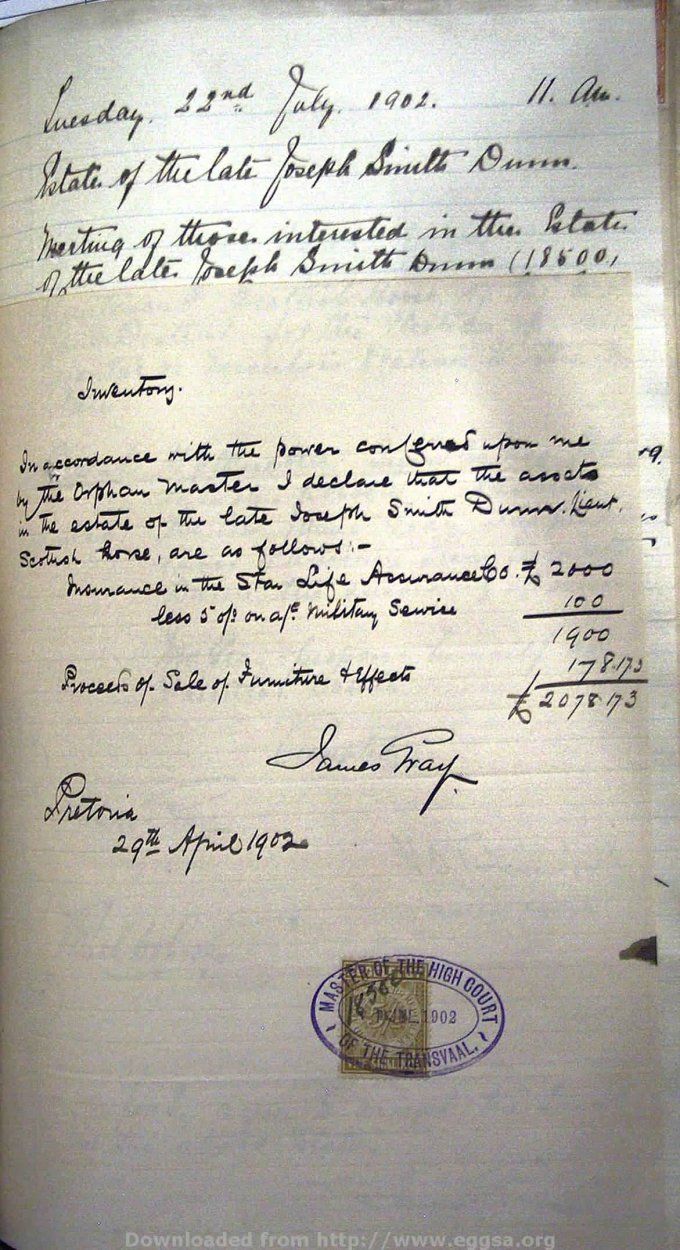 Tuesday. 22nd July. 1902. 11. Am.
Estate of the late Joseph Smith Dunn.
Meeting of those interested in the Estate
of the late Joseph Smith Dunn (18500,
Inventory.
In accordance with the power conferred upon me
by the Orphan Master I declare that the assets
in the estate of the late Joseph Smith Dunn. Lieut.
Scottish Horse, are as follows:-
Insurance in the Star Life Assurance Co. £ 2000
less 5 o/o on a/c Military Service 100
1900
Proceeds of Sale of Furniture & Effects 178.17.3
£ 2078.17.3
James Gray.
Pretoria
29th April 1902
MASTER OF THE HIGH COURT
1902
OF THE TRANSVAAL.
Downloaded from http://www.eggsa.org